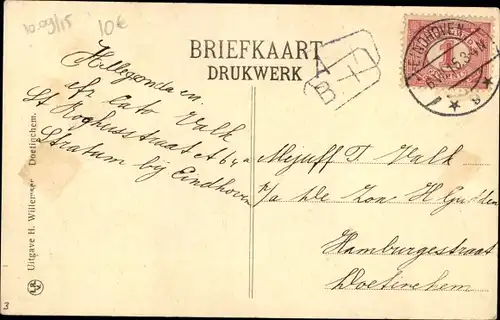 10.09/15
10€
BRIEFKAART
DRUKWERK
EINDHOVEN
1
A
B
Hillegonda en
Cato Valk
St Rochusstraat 64a
Stratum bij Eindhoven
Mejuff T. Valk
p/a De Zon H
Hamburgestraat
Doetinchem
Uitgave H. Willemsen, Doetinchem.
3